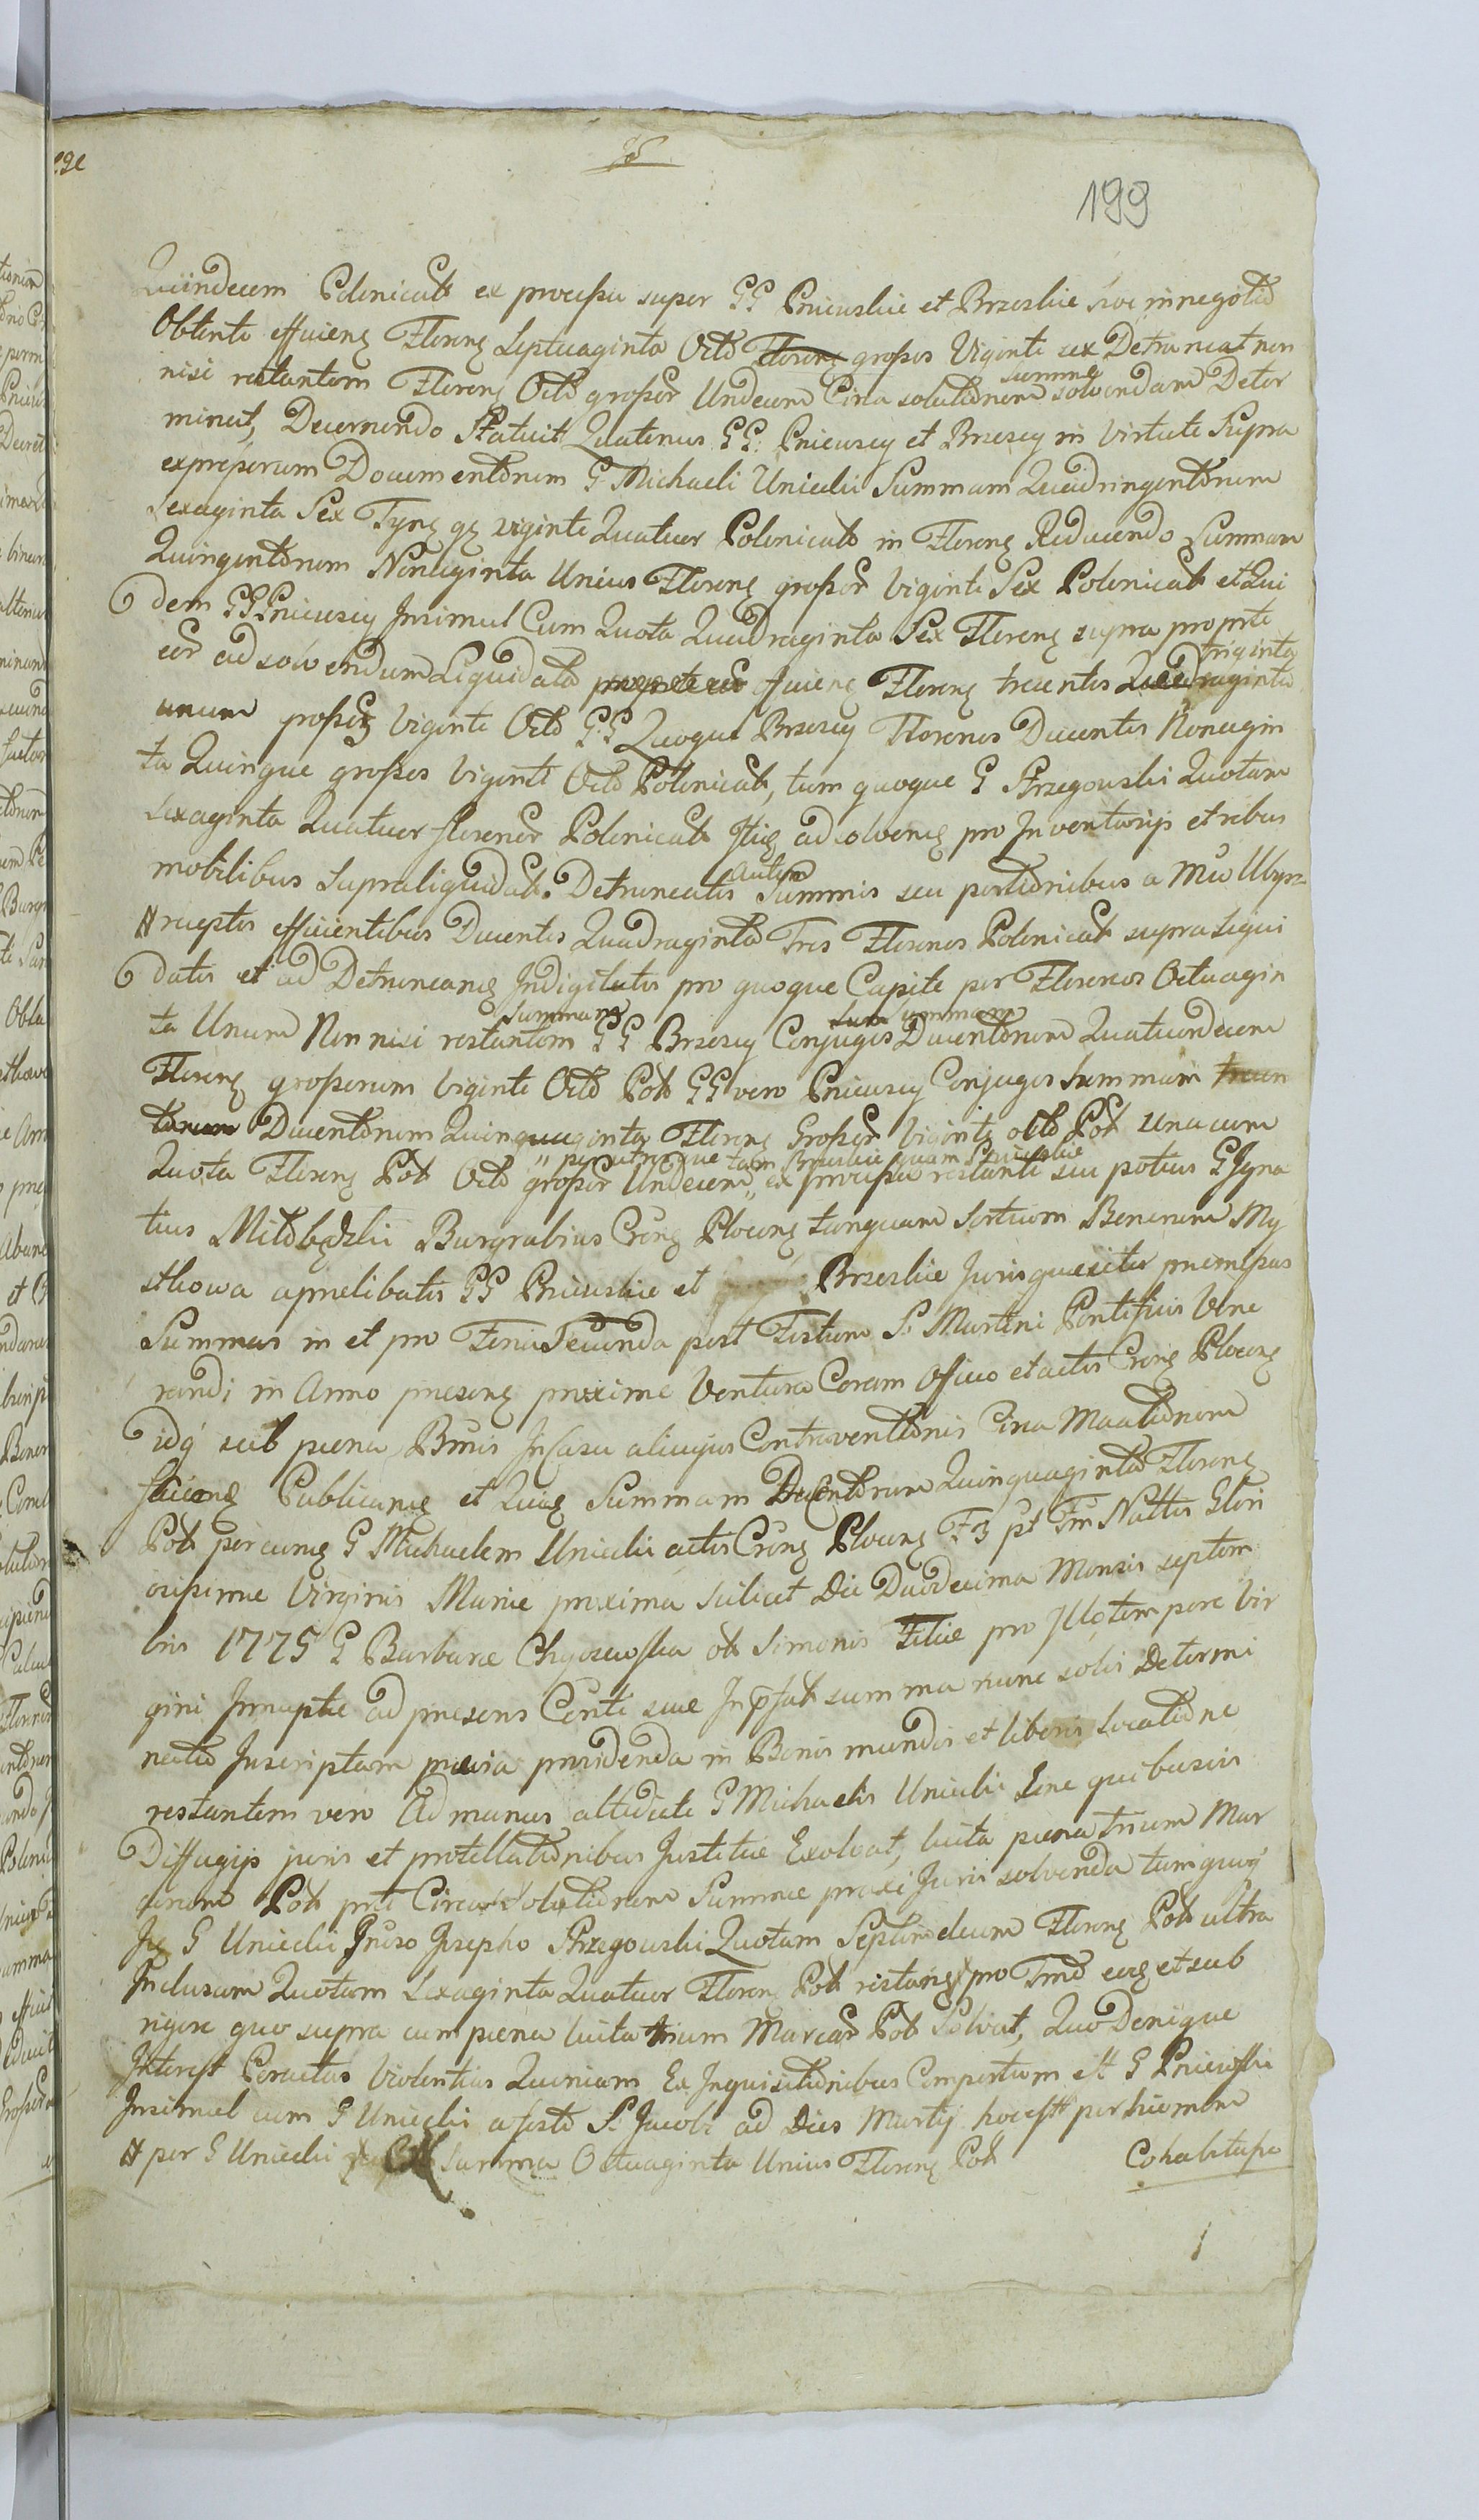 199
Quindecem Polonicab ex processu super GG Pniewskie et Brzeskie hoc in negotio
Obtento efficieng Floreng Septuaginta Octo Floreng grossos Viginti sex Detruncat non
summe
nisi restantem Floreng Octo grossor Undecem Circa solutionem solvendam Deter
minat, Decernendo Statuit Quatenus GG: Pniewscy et Brzescy in Virtute Supra
expressorum Documentorum G Michaeli Uniecki Summam Quadringentorum
Sexaginta Sex Tyng gg viginti Quatuor Polonicab in Floreng Reducendo Summam
Quingentorum Nonaginta Unius Floreng grossor Viginti Sex Polonicab et Qui
dem GG Pniewscy Insimul Cum Quota Quadraginta Sex Floreng supra propte
triginta
eos ad solvendum Liquidato propter eos efficieng Floreng trecentos Quadraginta
unum grossos Viginti Octo GG Quoque Brzescy Florenos Ducentos Nonagin
ta Quinque grossos Viginti Octo Polonicab, tum quoque G Strzegowski Quotam
Sexaginta Quatuor florenor Polonicab Itig adsolveng pro Inventarijs et rebus
autem
mobilibus supraliquidab. Detruncatis Summis seu portionibus a
receptis efficientibus Ducentis Quadraginta Tres Florenos Polonicab supra Liqui
datis et ad Detruncang Indigitatis pro quoque Capite per Florenos Octuagin
Summam sum ummam
ta Unum Non nisi restantem GG Brzescy Conjuges Ducentorum Quatuordecem
Floreng grossorum Viginti Octo Pob GG vero Pniewscy Conjuges Summam trecen
torum Ducentorum Quinquaginta Floreng Grossor Viginti octo Pob una cum
per utrumque tam Brzeskie quam Pniewskie
Quota Floreng Pob Octo grossor Undecem ex processu restanti seu potius G Igna
tius Miłobędzki Burgrabius Creng Ploceng tanquam Sortium Bonorum My
stkowa a prælibatis GG Pniewskie et Brzeskie Juris quæsitor præmissas
Summas in et pro Feria Secunda post Festum S. Martini Pontificis Vene
randi in Anno præseng proxime Venturo Coram Officio et actis Creng Ploceng
idq sub pæna Bmis In Casu alicujus Contraventionis Circa
facieng Publicang et Quig Summam Ducentorum Quinquaginta Floreng
Pob per eung G Michaelem Uniecki actis Creng Ploceng F3 pt Fm Nattis Glori
osissimæ Virginis Mariæ proxima scilicet Die Duodecima Mensis septem
bris 1775 G Barbaræ Chyczewska ob Simonis Filiæ pro Illo tempore Vir
gini Innuptæ ad præsens Conti suæ summa nunc solvi Determi
nato Inscriptam prævia providenda in Bonis mundis et liberis Locatione
restantem vero Ad manus altedicti G Michaelis Uniecki Sine quibusvis
Diffugijs juris et protellationibus Justitiæ Exolvat, luita pæna trium Mar
carum Pob pnti Circa Solutionem Summæ proxi Juris solvenda tum quoq
Ig G Uniecki Gnoso Josepho Strzegowski Quotam Septemdecem Floreng Pob ultra
Inclusam Quotam Sexaginta Quatuor Floreng Pob restang pro Tmo eog et sub
rigore quo supra cum pæna luita trium Marcar Pob Solvat, Quo Denique
Interest Peractas Violentias Quoniam Ex Inquisitionibus Compertum est G Pniewskie
Insimul cum G Uniecki a festo S. Jacobi ad Dies Martij hoc est per hiemem
per G Uniecki summa Octuaginta Unius Floreng Pob Cohabitasse